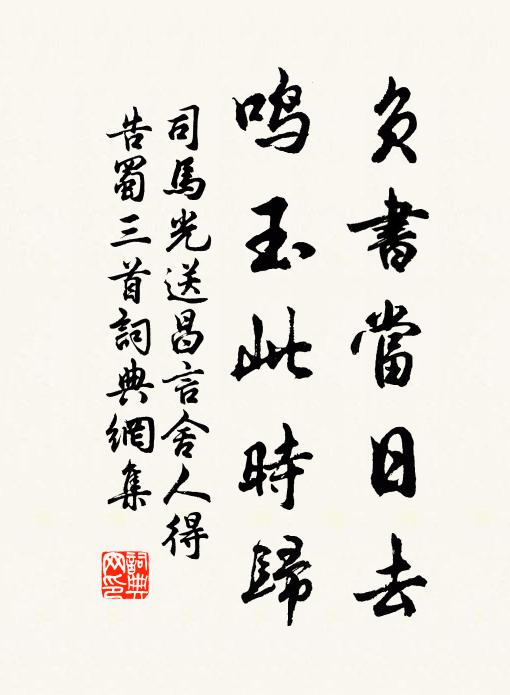 負書當日去
鳴玉此時歸
司馬光送昌言舍人得
告蜀三首詞典網集
詞典
网印